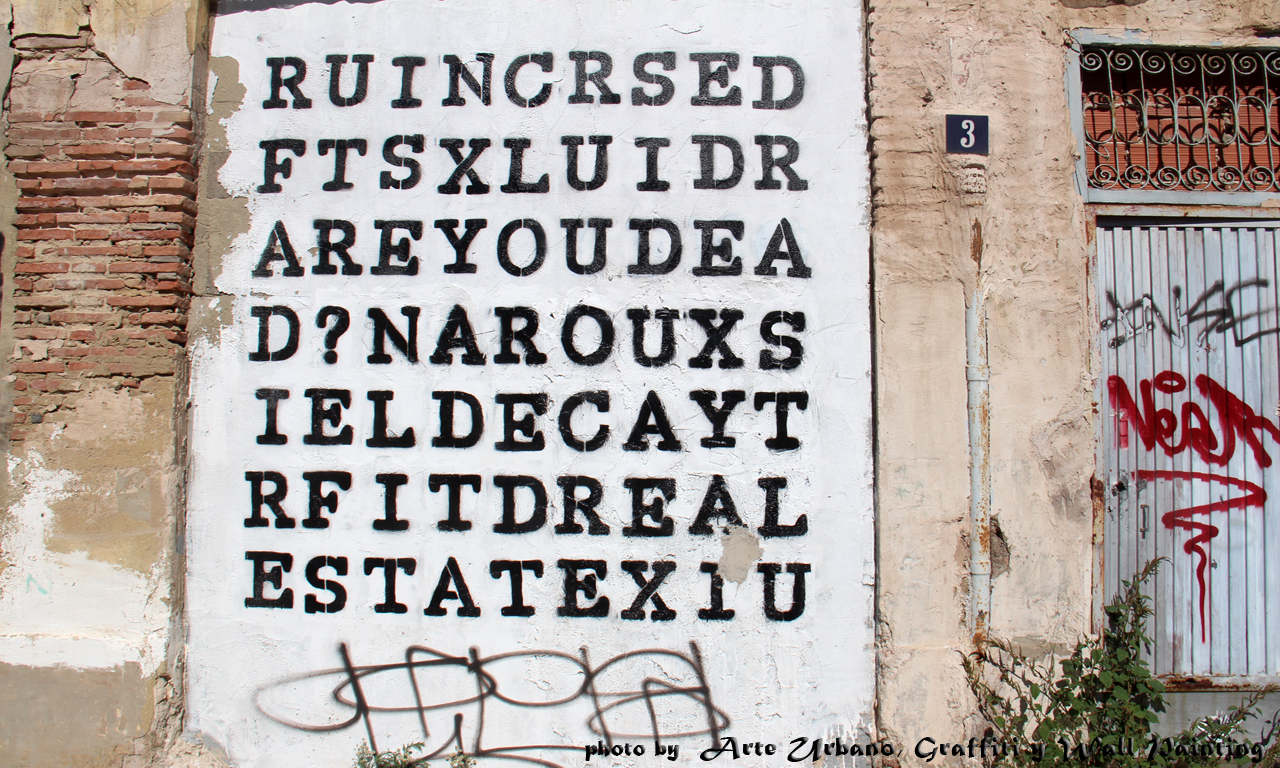 RUINCRSED
FTSXLUIDR
AREYOUDEA
D?NAROUXS
IELDECAYT
RFITDREAL
ESTATEX1U
3
photo by Arte Urbano, Graffiti y Wall Painting